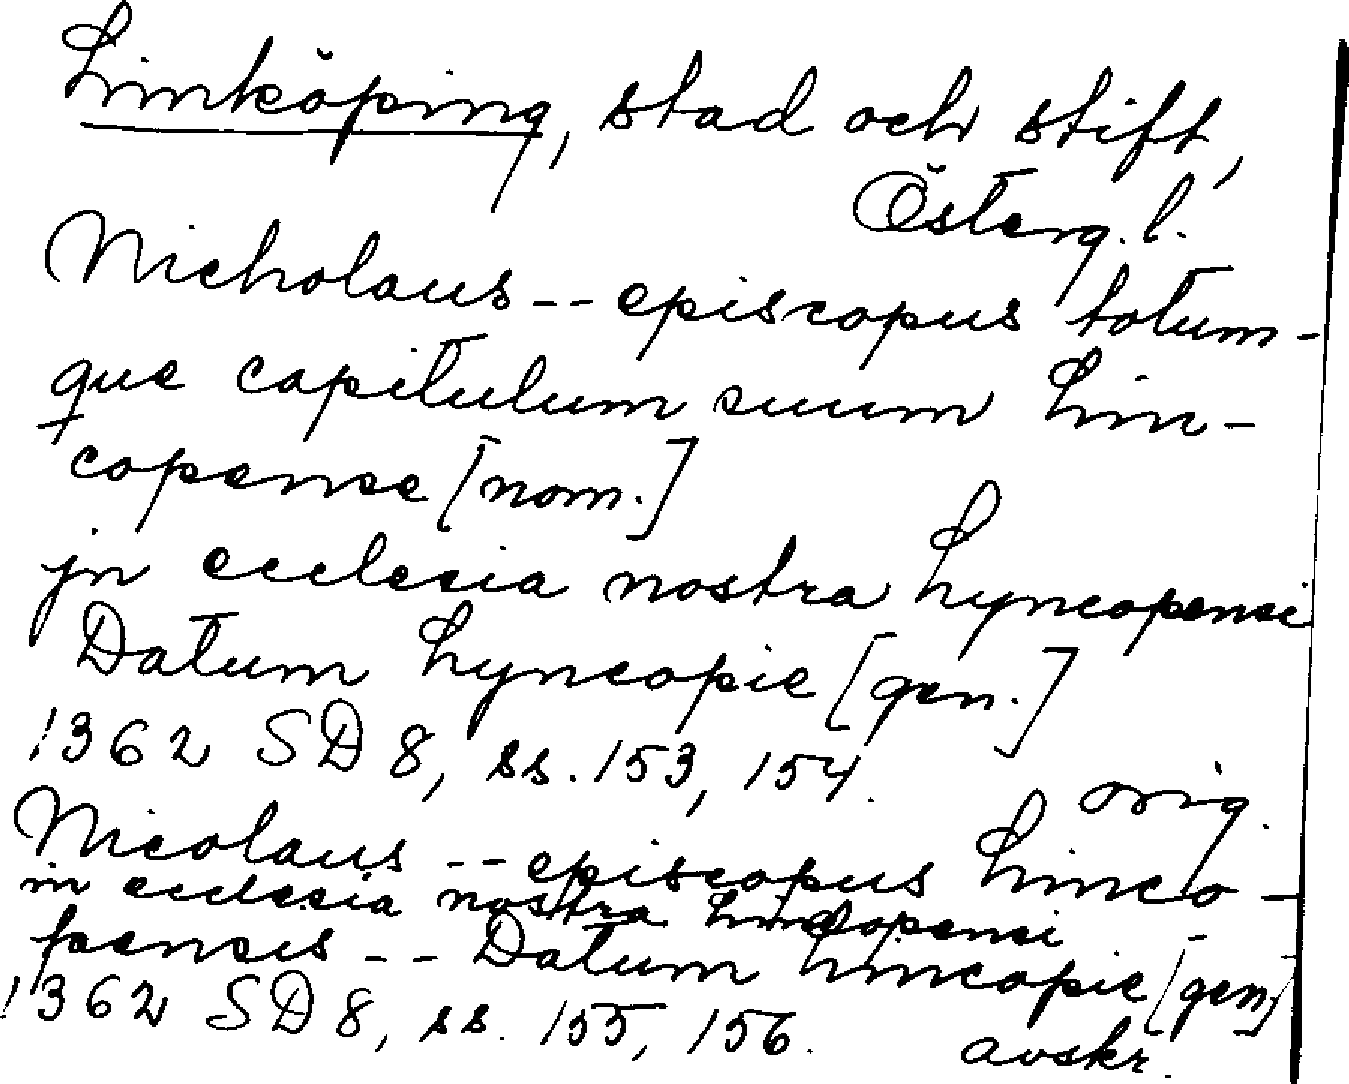 Linköping, stad och stift,
Österg. l.
Nicholaus -- episcopus totum-
que capitulum suum Lin-
copense [nom.]
jn ecclesia nostra Lyncopensi
Datum Lyncopie [gen.]
1362 SD 8, ss. 153, 154.
orig.
Nicolaus -- episcopus Linco-
in ecclesia nostra Lincopensi
pensis -- Datum Lincopie [gen]
1362 SD 8, ss. 155, 156.
avskr.